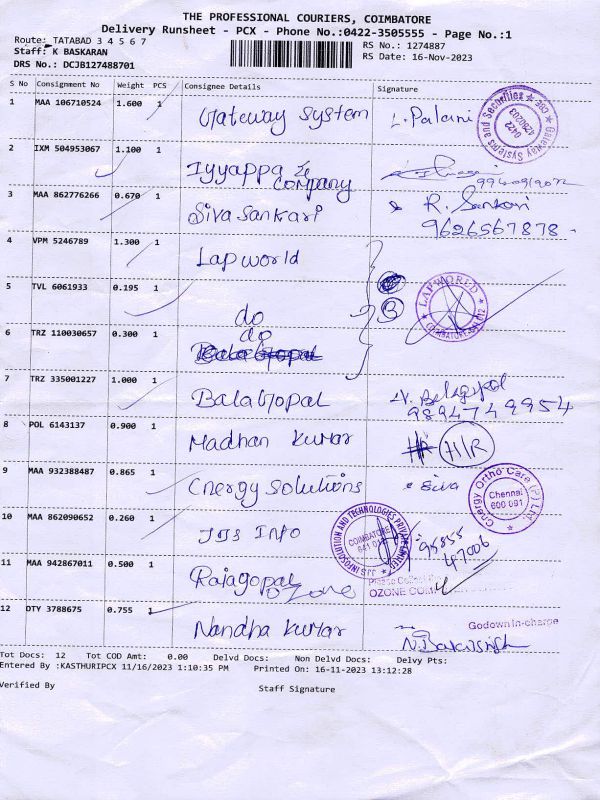 THE PROFESSIONAL COURIERS, COIMBATORE
Delivery Runsheet - PCX - Phone No.:0422-3505555 - Page No.:1
Route: TATABAD 3 4 5 6 7
Staff: K BASKARAN
DRS No.: DCJB127488701
RS No.: 1274887
RS Date: 16-Nov-2023
S No Consignment No Weight PCS Consignee Details Signature
1 MAA 106710524 1.600 1 Gateway System L. Palani
Gateway Systems and Securities
0422
4280203
2 IXM 504953067 1.100 1 Iyyappa & Company
3 MAA 862776266 0.670 1 Siva Sankari R. Sankari
9626567878
4 VPM 5246789 1.300 1 Lap world
5 TVL 6061933 0.195 1 do
3
LAP WORLD
COIMBATORE-641 012
6 TRZ 110030657 0.300 1 do
7 TRZ 335001227 1.000 1 BalaGopal N. Balagopal
9894749954
8 POL 6143137 0.900 1 Madhan Kumar H/R
9 MAA 932388487 0.865 1 Energy Solutions Siva
Energy Ortho Care (P) Ltd
Chennai
600 091
10 MAA 862090652 0.260 1 JJS Info
JJS INFOSOLUTION AND TECHNOLOGIES PRIVATE LIMITED
COIMBATORE
95855
47006
11 MAA 942867011 0.500 1 Rajagopal
Ozone
OZONE
12 DTY 3788675 0.755 1 Nandha Kumar
Godown In-charge
Tot Docs: 12 Tot COD Amt: 0.00 Delvd Docs: Non Delvd Docs: Delvy Pts:
Entered By :KASTHURIPCX 11/16/2023 1:10:35 PM Printed On: 16-11-2023 13:12:28
Verified By Staff Signature